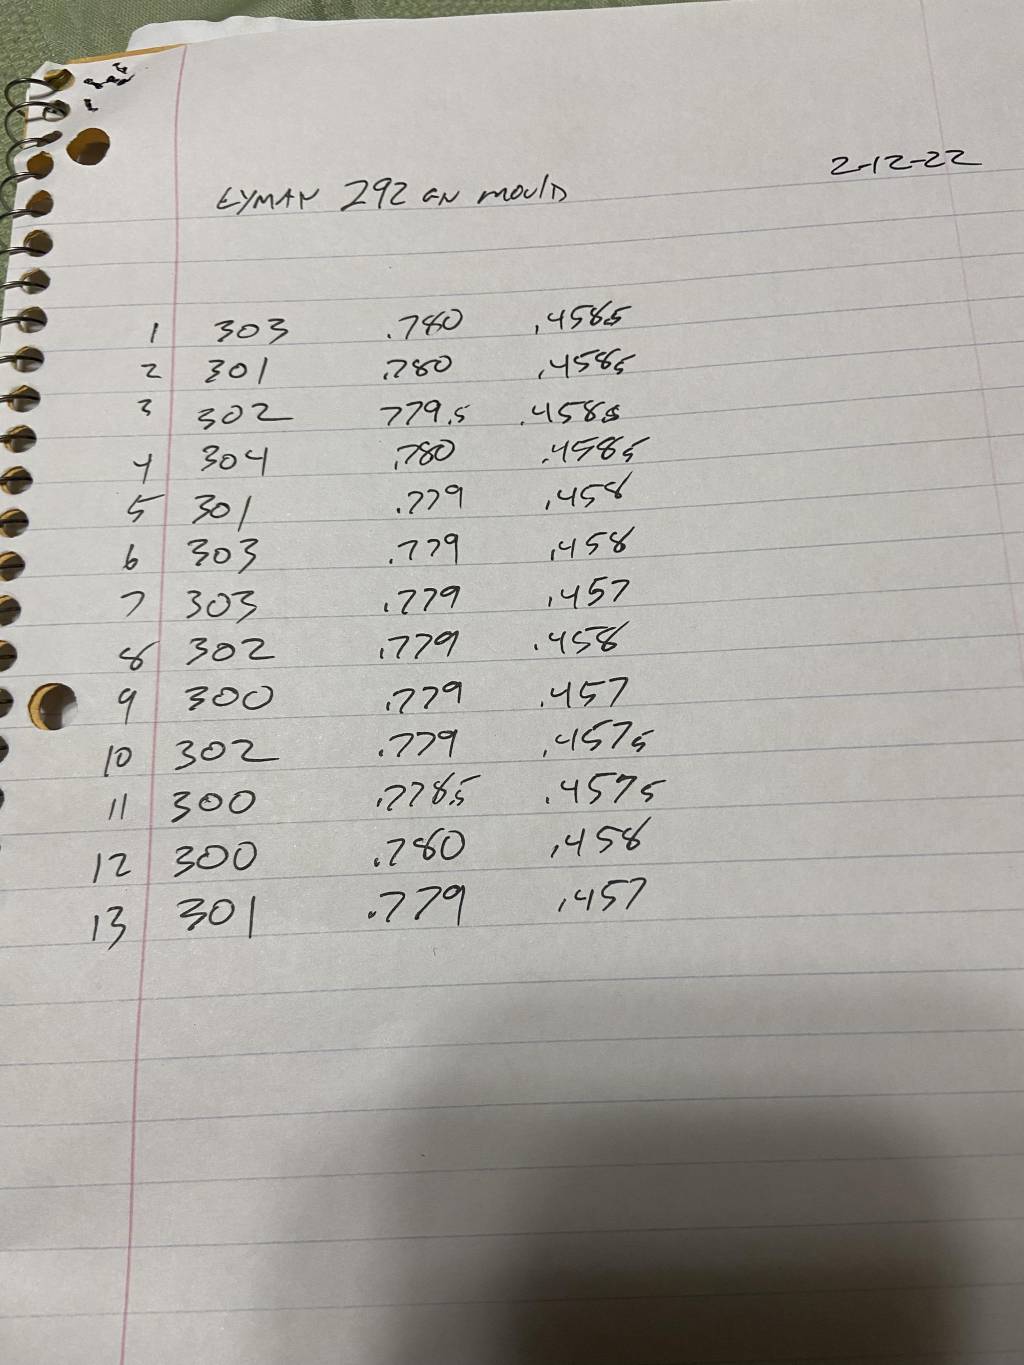 2-12-22
LYMAN 292 GN MOULD
1 303 .780 .4585
2 301 .780 .4585
3 302 779.5 .4585
4 304 .780 .4585
5 301 .779 .458
6 303 .779 .458
7 303 .779 .457
8 302 .779 .458
9 300 .779 .457
10 302 .779 .4575
11 300 .778.5 .4575
12 300 .780 .458
13 301 .779 .457